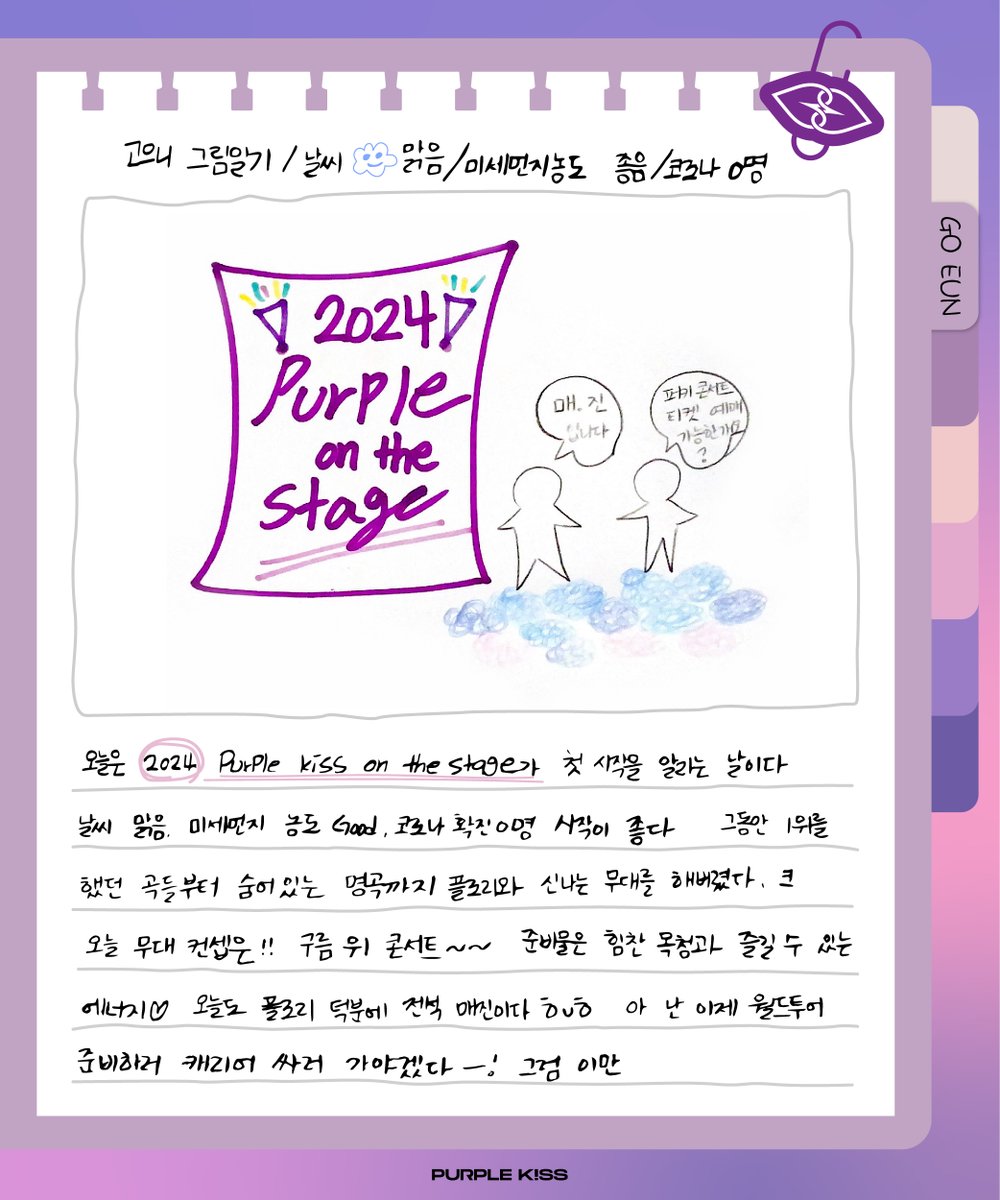 고으니 그림일기 / 날씨 맑음 / 미세먼지농도 좋음 / 코로나 0명
GO EUN
2024
Purple
on the
stage
매.진
입니다
퍼키 콘서트
티켓 예매
가능한가요
?
오늘은 2024 Purple kiss on the stage가 첫 시작을 알리는 날이다
날씨 맑음. 미세먼지 농도 Good, 코로나 확진 0명 시작이 좋다 그동안 1위를
했던 곡들부터 숨어있는 명곡까지 플로리와 신나는 무대를 해버렸다. 크
오늘 무대 컨셉은!! 구름 위 콘서트~~ 준비물은 힘찬 목청과 즐길 수 있는
에너지♡ 오늘도 플로리 덕분에 전석 매진이다 ㅎuㅎ 아 난 이제 월드투어
준비하러 캐리어 싸러 가야겠다 —! 그럼 이만
PURPLE K!SS